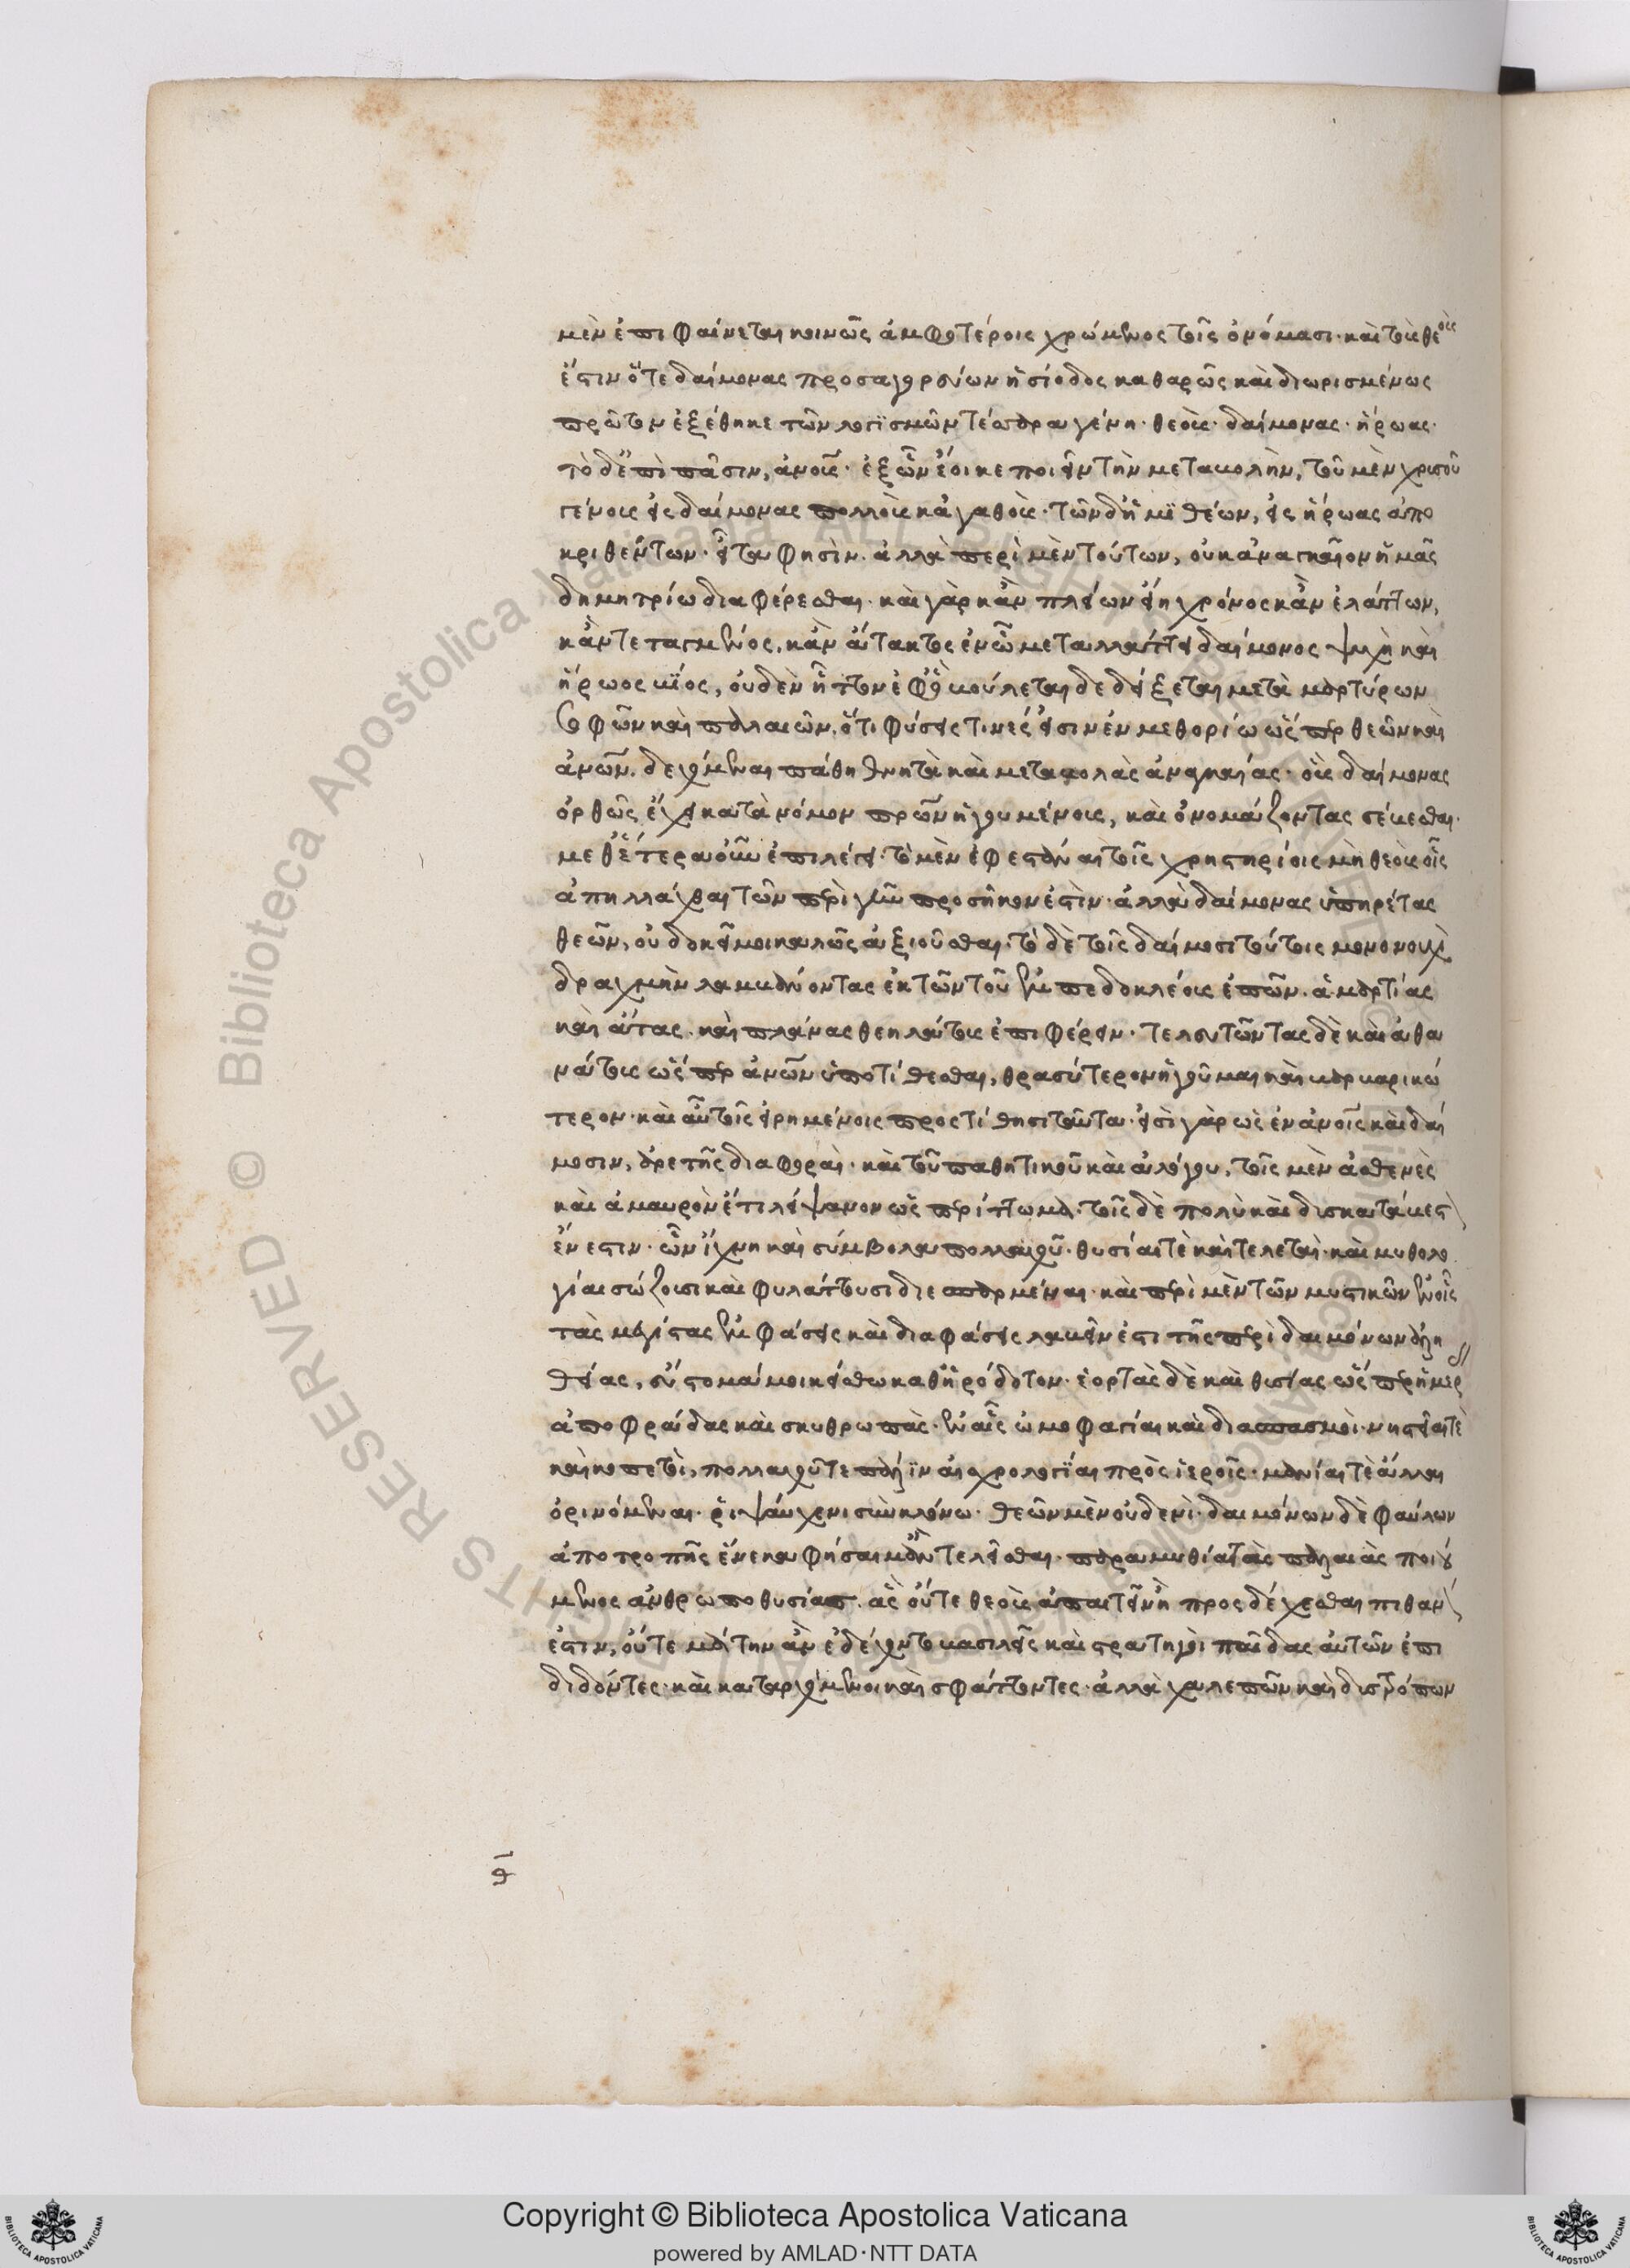 μὲν ἐπιφαίνεται κοινῶς ἀμφοτέροις χρώμενος τοῖς ὀνόμασι· καὶ τοὺς θεοὺς
ἔστιν ὅτε δαίμονας προσαγορεύων ἡσίοδος καθαρῶς καὶ διωρισμένως
πρῶτον ἐξέθηκε τῶν λογισμῶν τέσσαρα γένη· θεοὺς· δαίμονας· ἥρωας·
τὸ δ' ἐπὶ πᾶσιν, ἀνους· ἐξ ὧν ἔοικε ποιεῖν τὴν μεταβολὴν, τοῦ μὲν χρυσοῦ
γένους εἰς δαίμονας πολλοὺς κἀγαθοὺς· τῶν δ' ἡμιθέων, εἰς ἥρωας ἀπο
κριθέντων· εἶτα φησὶν. ἀλλὰ περὶ μὲν τούτων, οὐκ ἀναγκαῖον ἡμᾶς
δημητρίω διαφέρεσθαι· καὶ γὰρ κἂν πλείων ἔη χρόνος κἂν ἐλάττων,
κἂν τεταγμένος, κἂν ἄτακτος ἐν ὧ μεταλλάττει δαίμονος ψυχὴ καὶ
ἥρωος βίος, οὐδὲν ἧττον ἐφ' ὧ βούλεται δεδείξεται μετὰ μαρτύρων
σοφῶν καὶ παλαιῶν, ὅτι φύσεις τινές εἰσιν ἐν μεθορίω ὥσπερ θεῶν καὶ
ἀνων. δεχόμεναι πάθη θνητὰ καὶ μεταβολὰς ἀναγκαίας· οὓς δαίμονας
ὀρθῶς ἔχει κατὰ νόμον πρων ἡγουμένους, καὶ ὀνομάζοντας σέβεσθαι.
μεθ' ἕτερα οὖν ἐπιλέγει· τὸ μὲν ἐφεστάναι τοῖς χρηστηρίοις μὴ θεοὺς οἷς
ἀπηλλάχθαι τῶν περὶ γῆν προσῆκον ἐστὶν· ἀλλὰ δαίμονας ὑπηρέτας
θεῶν, οὐ δοκεῖ μοι κακῶς ἀξιοῦσθαι· τὸ δὲ τοῖς δαίμοσι τούτοις μονονουχὶ
δραχμὴν λαμβάνοντας ἐκ τῶν τοῦ ἐμπεδοκλέους ἐπῶν. ἁμαρτίας
καὶ ἄτας. καὶ πλάνας θεηλάτους ἐπιφέρειν· τελευτῶντας δὲ καὶ ἀθα
νάτους ὥσπερ ἀνων ὑποτίθεσθαι, θρασύτερον ἡγοῦμαι καὶ βαρβαρικώ
τερον· καὶ αὖ τοῖς εἰρημένοις προστίθησι ταῦτα· εἰσὶ γὰρ ὡς ἐν ἀνοις καὶ δαί
μοσιν, ἀρετῆς διαφοραὶ· καὶ τοῦ παθητικοῦ καὶ ἀλόγου, τοῖς μὲν ἀσθενὲς
καὶ ἀμαυρὸν ἔτι λείψανον ὥσπερ περίττωμα· τοῖς δὲ πολὺ καὶ δυσκατάσβεστον
ἔνεστιν· ὧν ἴχνη καὶ σύμβολα πολλαχοῦ· θυσίαι τὲ καὶ τελεταὶ· καὶ μυθολο
γίαι σώζουσι καὶ φυλάττουσι διεσπαρμέναι· καὶ περὶ μὲν τῶν μυστικῶν ἐν οἷς
τὰς μεγίστας ἐμφάσεις καὶ διαφάσεις λαβεῖν ἐστι τῆς περὶ δαιμόνων ἀλη
θείας, εὔστομά μοι κείσθω καθ' ἡρόδοτον· ἑορτὰς δὲ καὶ θυσίας ὥσπερ ἡμέρας
ἀποφράδας καὶ σκυθρωπὰς· ἐν αἷς ὠμοφαγίαι καὶ διασπασμοὶ· νηστεῖαι τὲ
καὶ κοπετοὶ, πολλαχοῦ τε πάλιν αἰσχρολογίαι πρὸς ἱεροῖς· μανίαι τὲ ἄλλαι
ὀρινόμεναι· ῥιψαύχενι σὺν κλόνω· θεῶν μὲν οὐδενὶ· δαιμόνων δὲ φαύλων
ἀποτροπῆς ἕνεκα φήσαιμ' ἂν τελεῖσθαι· παραμυθία τὰς παλαιὰς ποιού
μενος ἀνθρωποθυσίας. ἃς οὔτε θεοὺς ἀπαιτεῖν ἢ προσδέχεσθαι πιθανόν
ἐστιν, οὔτε μάτην ἂν ἐδέχοντο βασιλεῖς καὶ στρατηγοὶ παῖδας αὐτῶν ἐπι
διδόντες· καὶ καταρχόμενοι καὶ σφάττοντες· ἀλλὰ χαλεπῶν καὶ δυστρόπων
θ
Copyright © Biblioteca Apostolica Vaticana
powered by AMLAD·NTT DATA